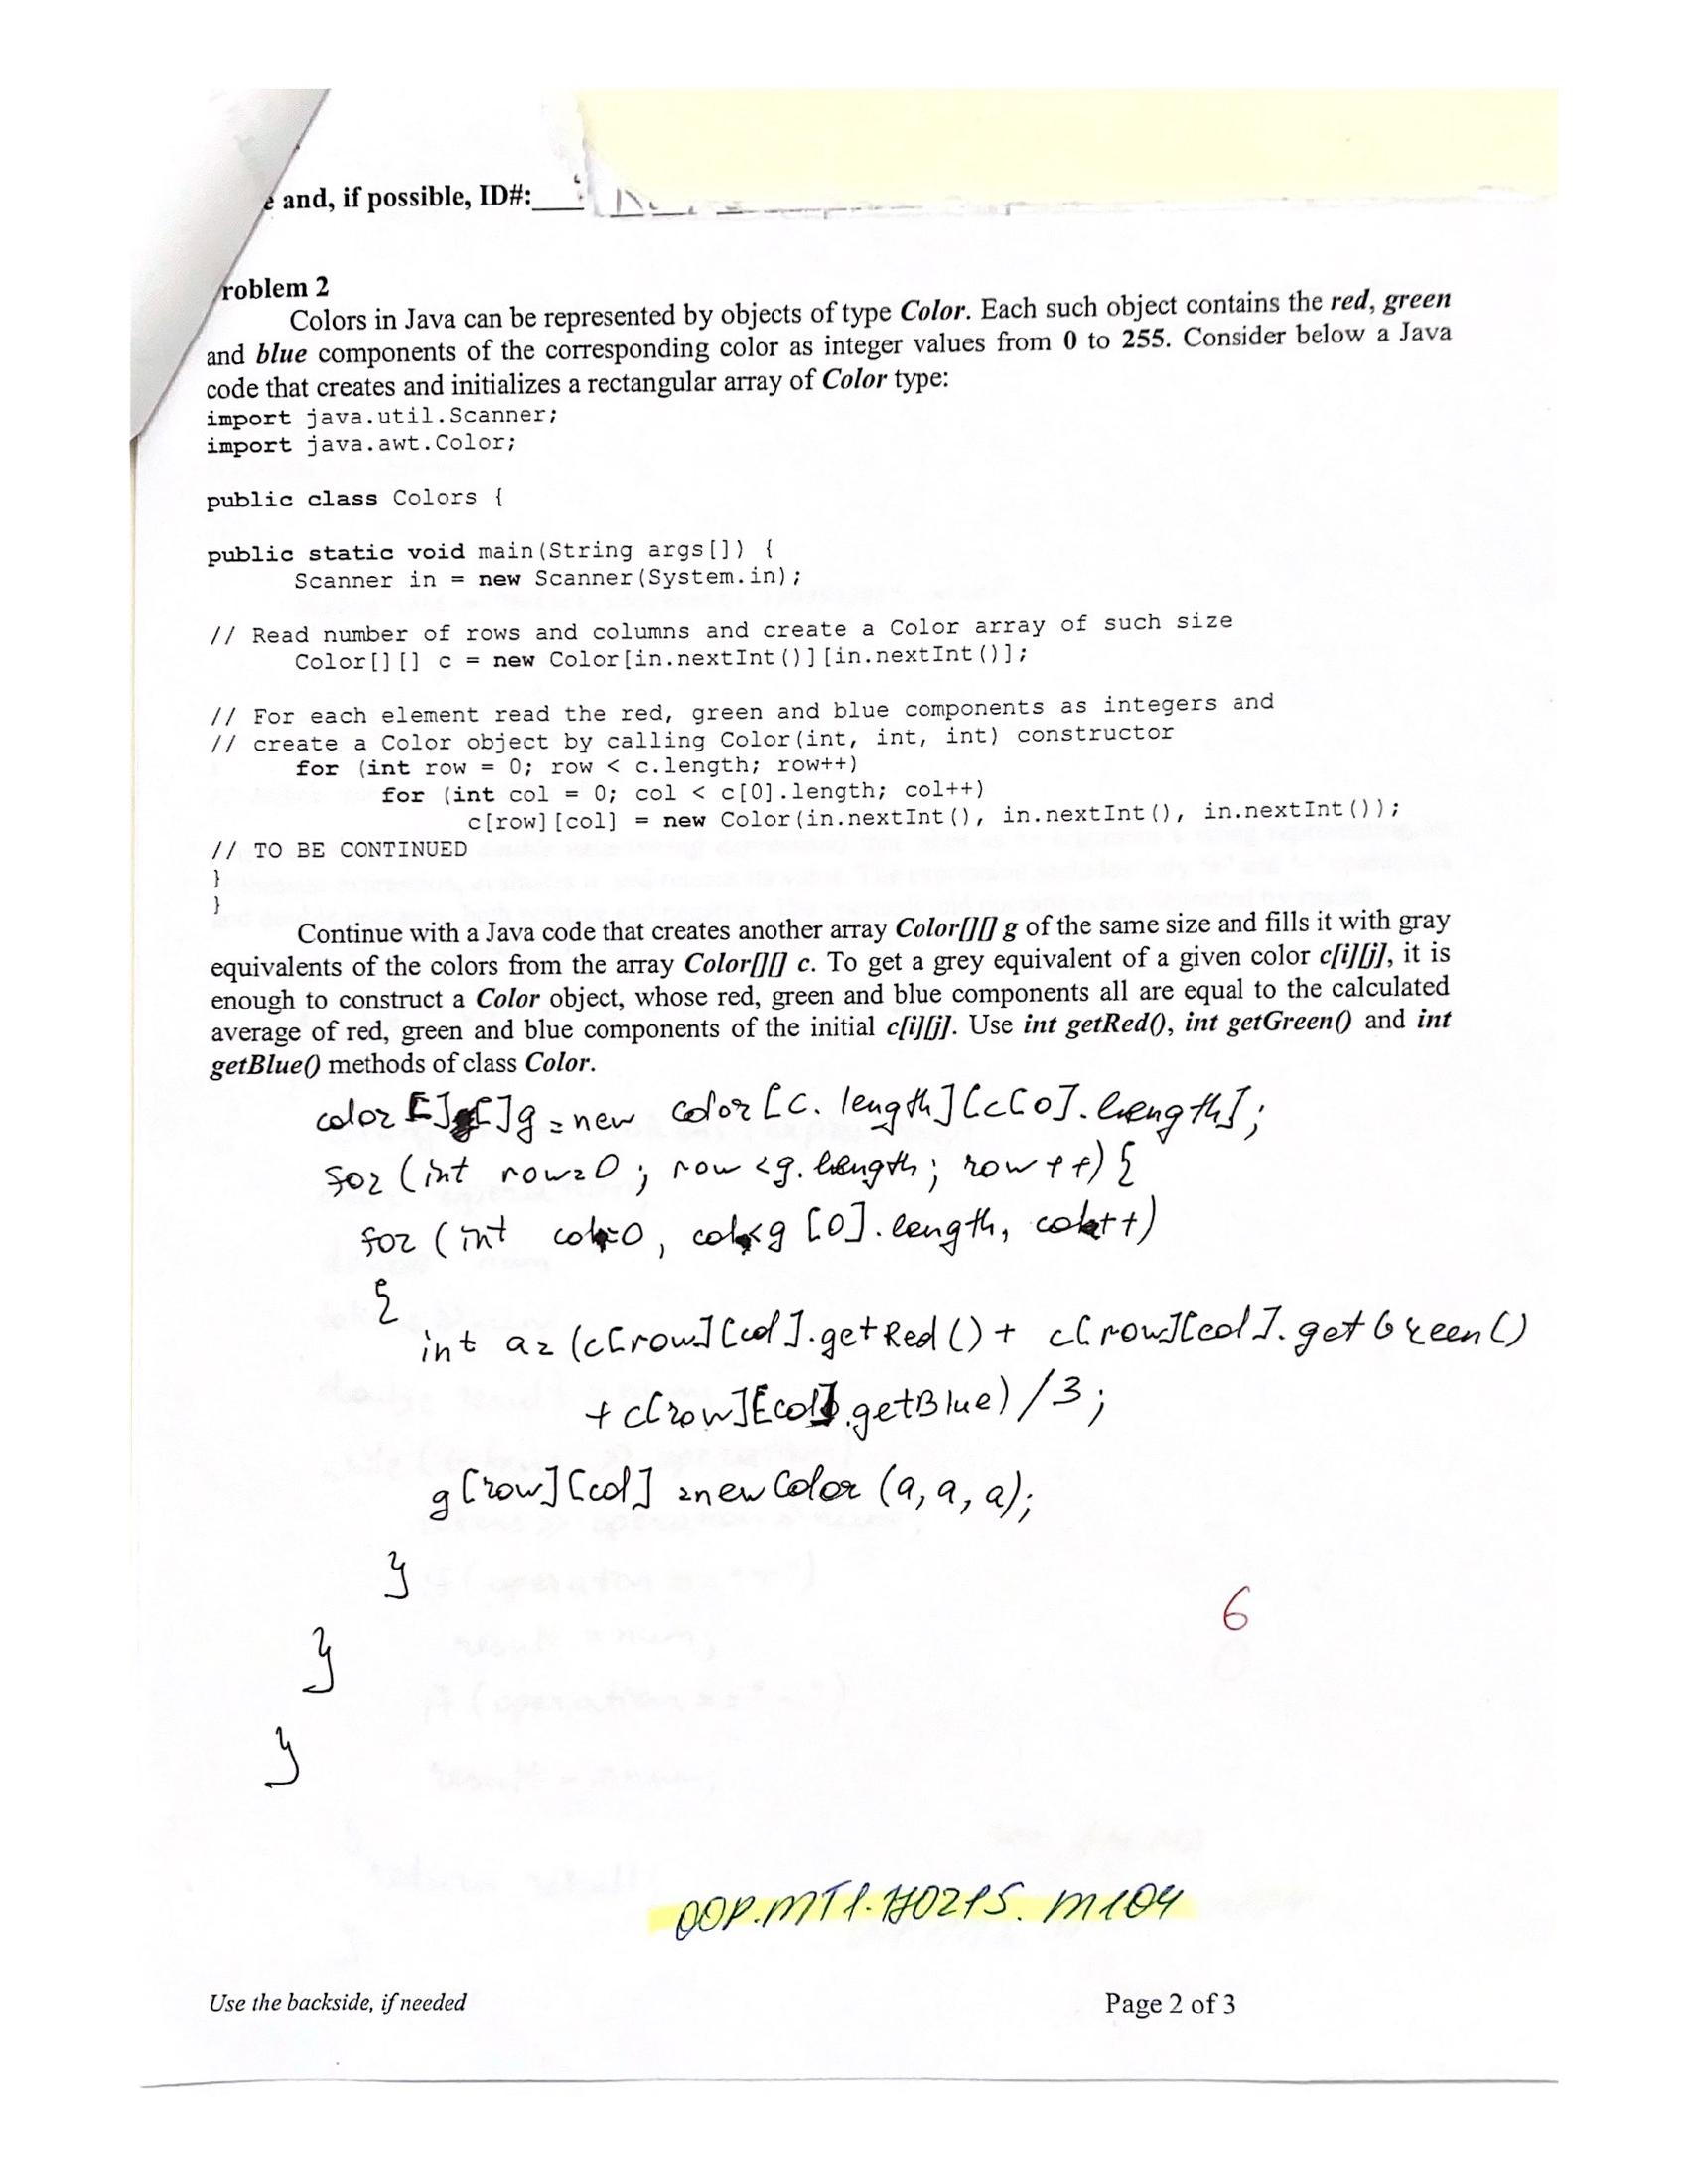 and, if possible, ID#:
roblem 2
Colors in Java can be represented by objects of type Color. Each such object contains the red, green
and blue components of the corresponding color as integer values from 0 to 255. Consider below a Java
code that creates and initializes a rectangular array of Color type:
import java.util.Scanner;
import java.awt.Color;
public class Colors {
public static void main(String args[]) {
Scanner in = new Scanner(System.in);
// Read number of rows and columns and create a Color array of such size
Color[][] c = new Color[in.nextInt()][in.nextInt()];
// For each element read the red, green and blue components as integers and
// create a Color object by calling Color(int, int, int) constructor
for (int row = 0; row < c.length; row++)
for (int col = 0; col < c[0].length; col++)
c[row][col] = new Color(in.nextInt(), in.nextInt(), in.nextInt());
// TO BE CONTINUED
}
}
Continue with a Java code that creates another array Color[][] g of the same size and fills it with gray
equivalents of the colors from the array Color[][] c. To get a grey equivalent of a given color c[i][j], it is
enough to construct a Color object, whose red, green and blue components all are equal to the calculated
average of red, green and blue components of the initial c[i][j]. Use int getRed(), int getGreen() and int
getBlue() methods of class Color.
color [][]g = new color [c. length][c[0]. length];
for (int row=0; row <g. length; row++) {
for (int col=0, col<g [0]. length, col++)
{
int a= (c[row][col].getRed()+ c[row][col].getGreen()
+ c[row][col].getBlue) /3;
g[row][col] =new Color (a, a, a);
}
}
}
6
OOP.MT1.170215.M104
Use the backside, if needed
Page 2 of 3